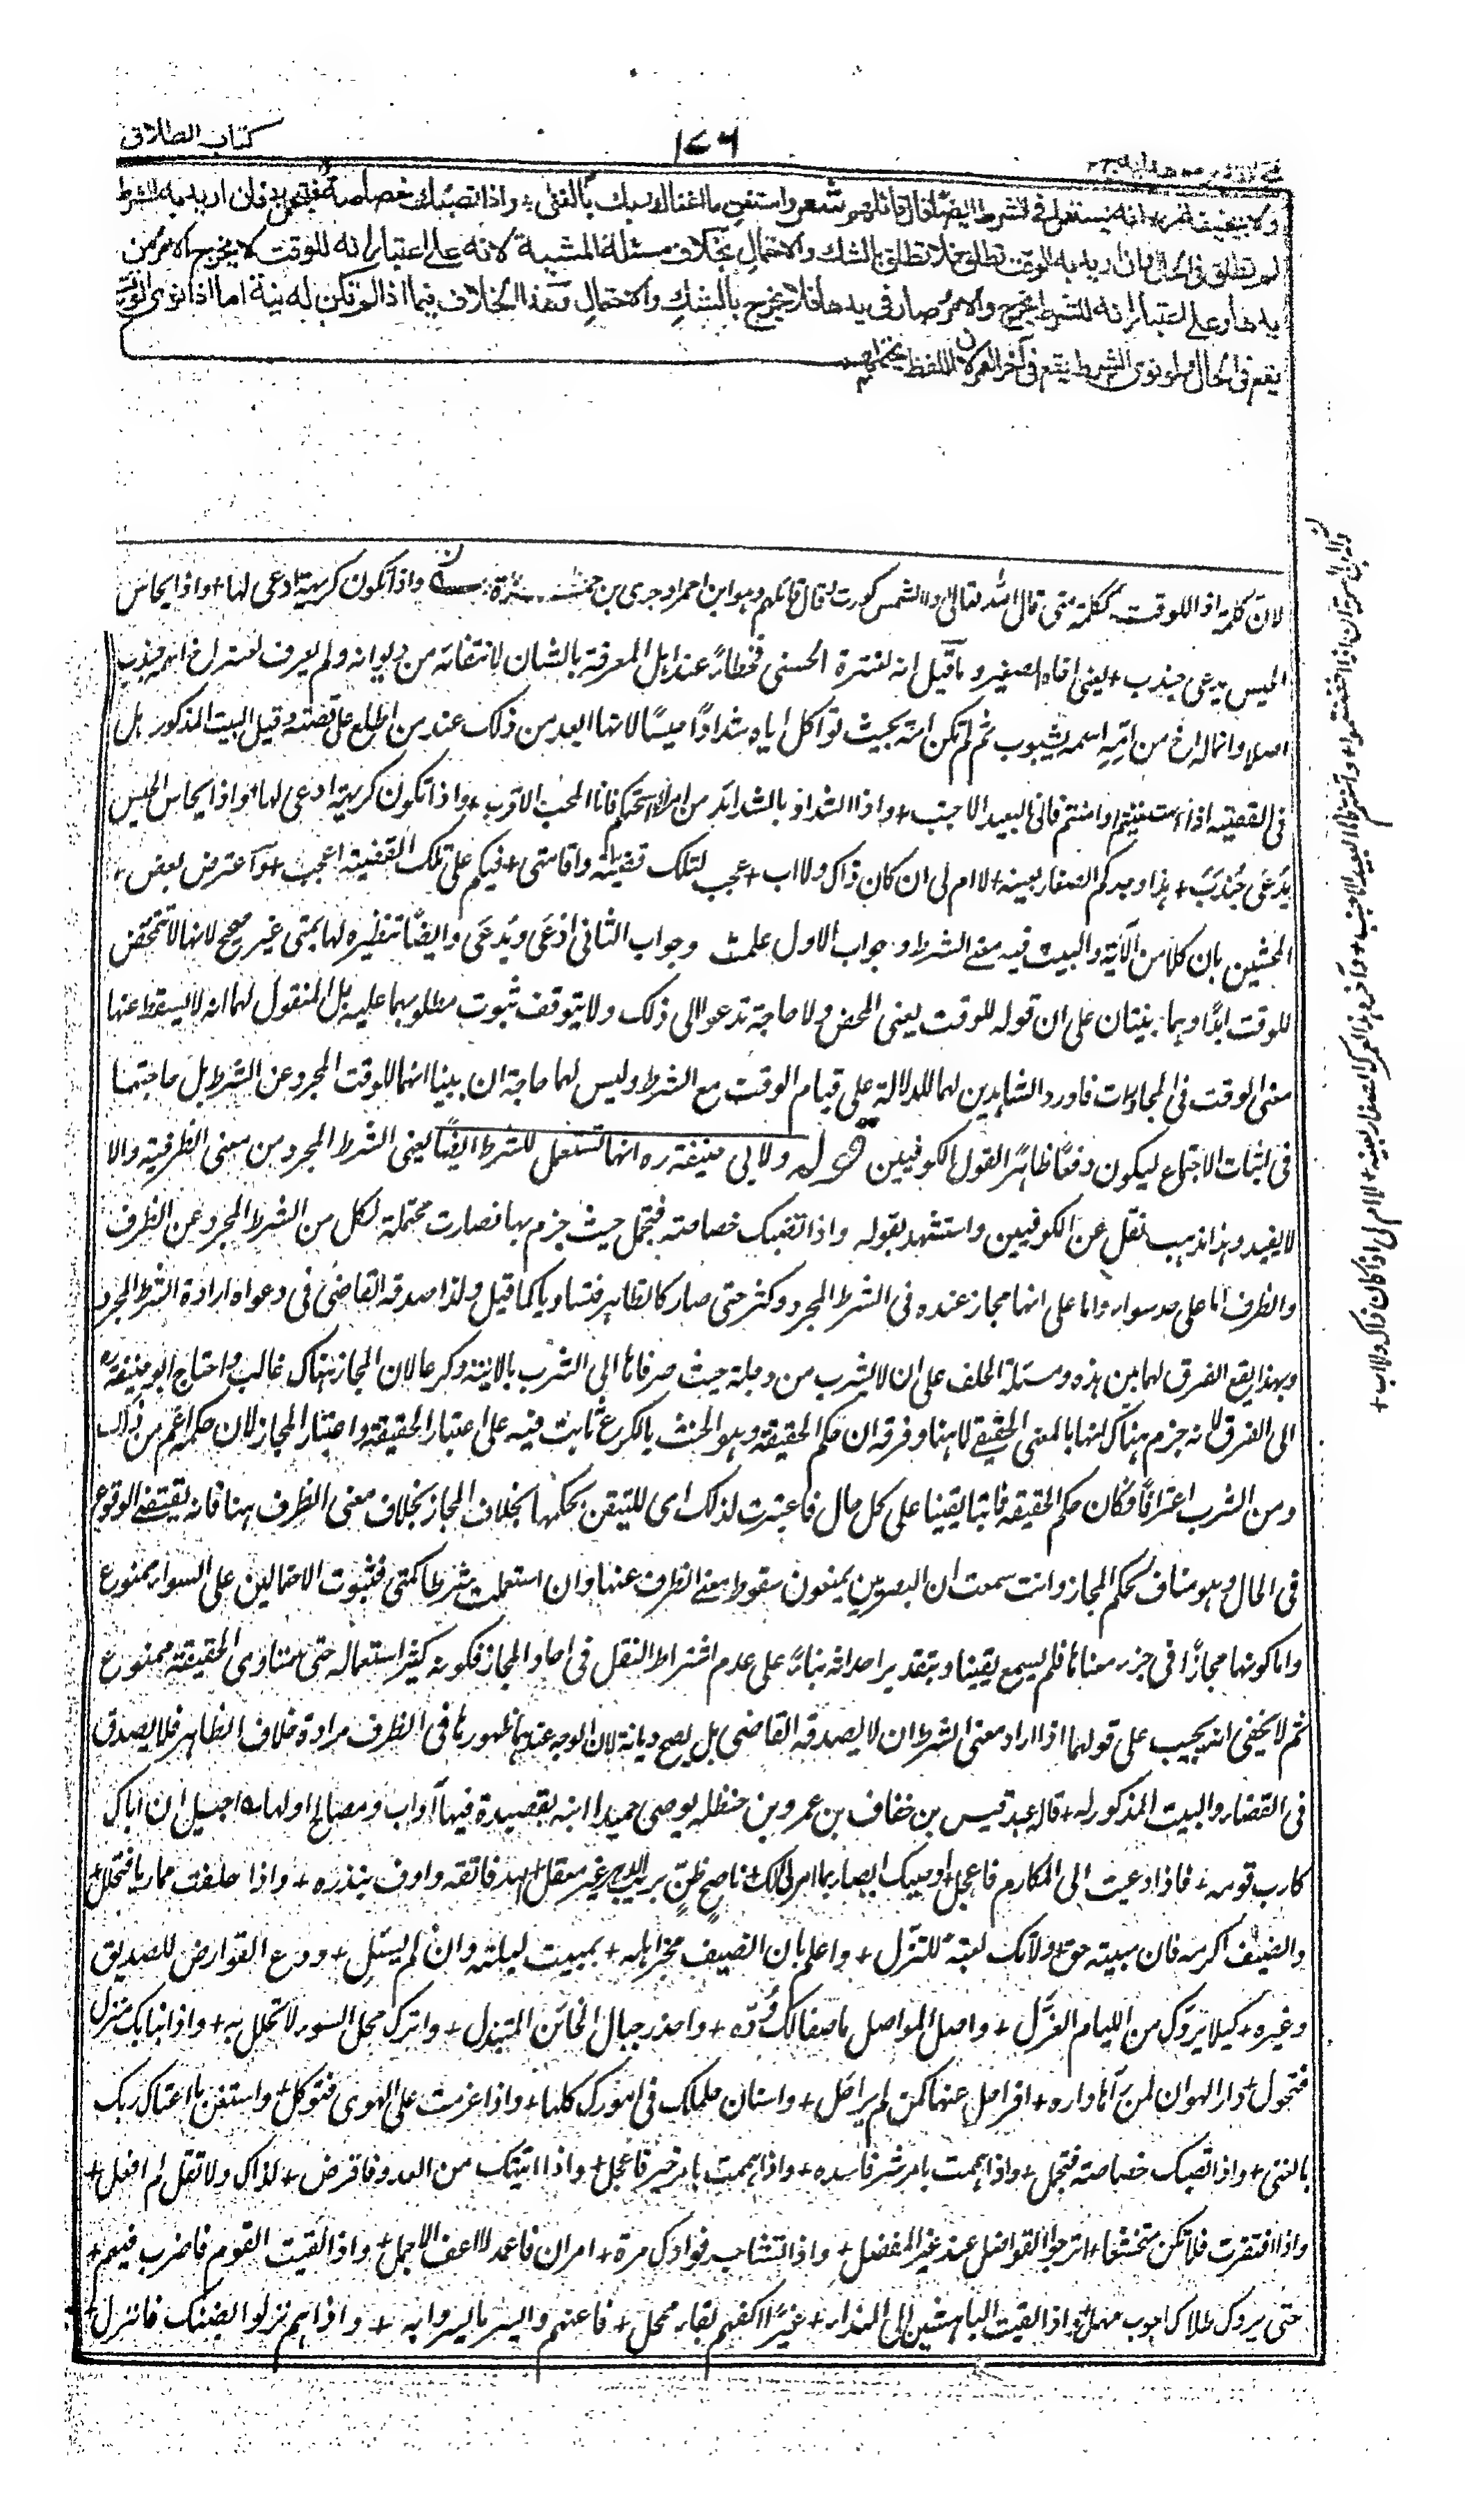 كتاب الطلاق
١٧٦
فتح القدير مع هدايه ج ٢
ولابي حنيفة انه يستعمل في الشرط ايضا قال قائلهم شعر واستغن ما اغناك ربك بالغنى + واذا تصبك خصاصة فتجمل + فان اريد به الشرط
لم تطلق في الحال وان اريد به الوقت تطلق فلا تطلق بالشك والاحتمال بخلاف مسئلة المشية لانه على اعتبار انه للوقت لا يخرج الامر من
يدها وعلى اعتبار انه للشرط يخرج والامر صار في يدها فلا يخرج بالشك والاحتمال وهذا الخلاف فيما اذا لم تكن له نية اما اذا نوى الوقت
يقع في الحال ولو نوى الشرط يقع في آخر العمر لان اللفظ يحتملهما
لان كلمة اذا للوقت ككلمة متى قال الله تعالى اذا الشمس كورت وقال قائلهم وهو ابن احمر او جرى بن ضمرة واذا تكون كريهة ادعى لها + واذا يحاس
الحيس يدعى جندب + يعني اخاه الصغير وما قيل انه لعنترة العبسي فخطأ عند اهل المعرفة بالشان لانتفائه من ديوانه ولم يعرف لعنترة اخ اسمه جندب
اصلا وانما له اخ من امه اسمه شيبوب ثم لم تكن امه بحيث تواكل اباه شدادا حيسا لانها ابعد من ذلك عند من اطلع على قصته وقيل البيت المذكور بل
في القضية اذا استغنيتم وامنتم فانا البعيد الاجنب + واذا الشدائد بالشدائد مرة اشجتكم فانا المحب الاقرب + واذا تكون كريهة ادعى لها + واذا يحاس الحيس
يدعى جندب + هذا وجدكم الصغار بعينه + لا ام لي ان كان ذاك ولا اب + عجب لتلك قضية واقامتي + فيكم على تلك القضية اعجب + واعترض بعض
المحشين بان كلا من الآية والبيت فيه معنى الشرط وجواب الاول علمت وجواب الثاني ادعى ويدعى وايضا تنظيره لها بمتى غير صحيح لانها لا تتمحض
للوقت ابدا وهما يبنيان على ان قوله للوقت يعني المحض ولا حاجة تدعو الى ذلك ولا يتوقف ثبوت مطلوبهما عليه بل المنقول لهما انه لا يسقط عنها
معنى الوقت في المجازات فاورد الشاهدين لهما للدلالة على قيام الوقت مع الشرط وليس لهما حاجة ان يبينا انها للوقت المجرد عن الشرط بل حاجتهما
في اثبات الاجتماع ليكون دفعا ظاهرا لقول الكوفيين قوله ولابي حنيفة ره انها تستعمل للشرط ايضا يعني الشرط المجرد من معنى الظرفية والا
لا يفيد وهذا مذهب نقل عن الكوفيين واستشهد بقوله واذا تصبك خصاصة فتجمل حيث جزم بها فصارت محتملة لكل من الشرط المجرد عن الظرف
والظرف اما على حد سواء واما على انها مجاز عنده في الشرط المجرد وكثر حتى صار كالظاهر فتساويا كما قيل ولذا صدقه القاضي في دعواه ارادة الشرط المجرد
وبهذا يقع الفرق لهما بين هذه ومسئلة الحلف على ان لا يشرب من دجلة حيث صرفاها الى الشرب بالآنية وكرعا لان المجاز هناك غالب واحتاج ابو حنيفة ره
الى الفرق لانه جزم هناك انها بالمعنى الحقيقي لا هنا وفرقه ان حكم الحقيقة وهو الحنث بالكرع ثابت فيه على اعتبار الحقيقة واعتبار المجاز لان حكمه اعم من ذلك
ومن الشرب اغترافا فكان حكم الحقيقة ثابتا يقينا على كل حال فاعتبرت لذلك اى للتيقن بحكمها بخلاف المجاز بخلاف معنى الظرف هنا فانه يقتضي الوقوع
في الحال وهو مناف لحكم المجاز وانت سمعت ان البصريين يمنعون سقوط معنى الظرف عنها وان استعملت شرطا كمتى فثبوت الاحتمالين على السواء ممنوع
واما كونها مجازا في جزء معناها فلم يسمع يقينا وبتقدير احداثه بناء على عدم اشتراط النقل في احاد المجاز فكونه كثير استعماله حتى تساوى الحقيقة ممنوع
ثم لا يخفى انه يجيب على قولهما اذا اراد معنى الشرط ان لا يصدقه القاضي بل يصح ديانة لان الوجه عندهما ظهورها في الظرف مرادة خلاف الظاهر فلا يصدق
في القضاء والبيت المذكور له + قاله عبد قيس بن خفاف بن عمرو بن حنظلة يوصي حميدا ابنه بقصيدة فيها آداب ومصالح اولها ه اجبيل ان اباك
كارب قومه + فاذا دعيت الى المكارم فاعجل + اوصيك ايصاء امرئ لك ناصح ظن بريب الدهر غير معقل + الله فاتقه واوف بنذره + واذا حلفت مماريا فتحلل +
والضيف اكرمه فان مبيته حق + ولا تك لعنة للنزل + واعلم بان الضيف مخبر اهله + بمبيت ليلته وان لم يسئل + ودع القوارض للصديق
وغيره + كيلا يروك من اللئام العزل + واصل المواصل ما صفا لك وده + واحذر حبال الخائن المتبذل + واترك محل السوء لا تحلل به + واذا نبا بك منزل
فتحول + دار الهوان لمن رآها داره + افراحل عنها كمن لم يرحل + واستان حلمك في امورك كلها + واذا عزمت على الهوى فتوكل + واستغن ما اغناك ربك
بالغنى + واذا تصبك خصاصة فتجمل + واذا هممت بامر شر فاتئده + واذا هممت بامر خير فاعجل + واذا اتتك من العدو قوارض + فاقرض لذاك ولا تقل لم افعل +
واذا افتقرت فلا تكن متخشعا + ترجو الفواضل عند غير المفضل + واذا تشاجر في فوادك مرة + امران فاعمد للاعف الاجمل + واذا لقيت القوم فاضرب فيهم +
حتى يروك طلاء اجرب مهمل + واذا لقيت الباهشين الى الندى + غبرا اكفهم بقاع ممحل + فاعنهم وايسر بما يسروا به + واذا هم نزلوا بضنك فانزل